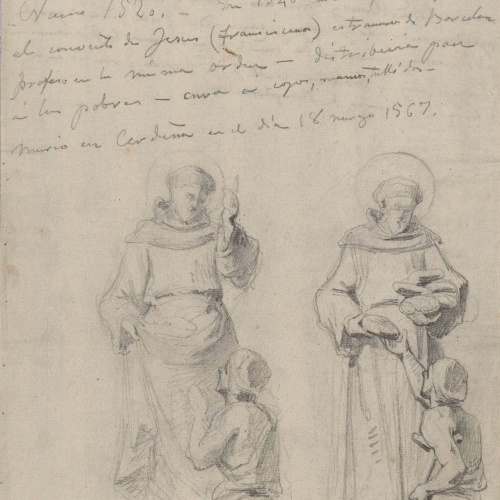 Nació 1520. – En 1540
el convento de Jesus (franciscanos) extramuros de Barcelona
profesó en la misma orden – distribuia pan
á los pobres – cura á cojos, mancos, tullidos –
Murió en Cerdeña en el día 18 marzo 1567.